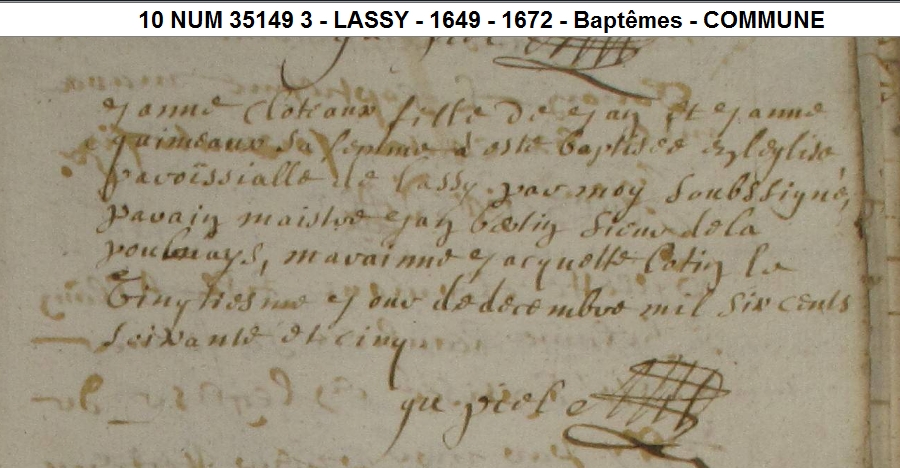 10 NUM 35149 3 - LASSY - 1649 - 1672 - Baptêmes - COMMUNE
Janne Cloteaux fille de Jan et Janne
guimeaux sa femme a esté baptisee en leglise
paroissialle de Lassy par moy soubssigné,
parain maistre Jan bertin sieur dela
poulnays, marainne Jacquette Cotin le
Vingtiesme Jour dedecembre mil six cents
soixante et cinq
gu piel